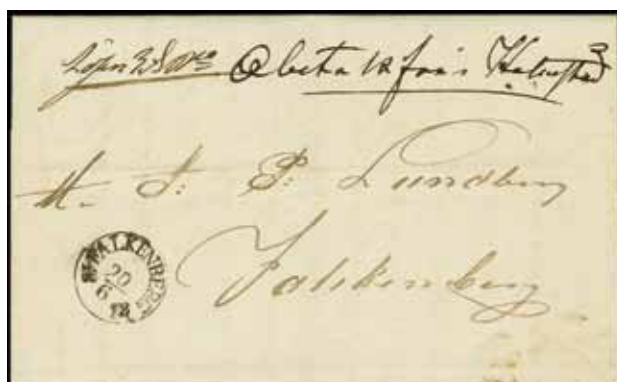 Obetalt från Halmstad
J: P: Lundberg
Falkenberg
FALKENBERG
20
6